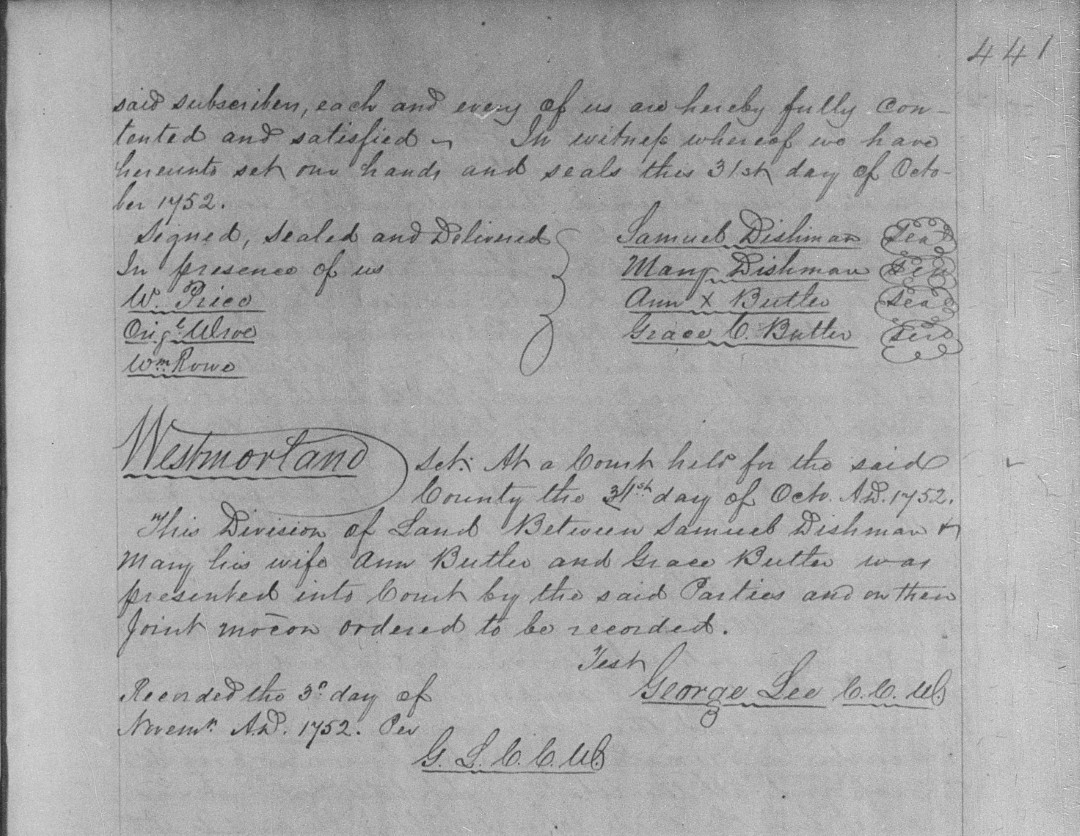 441
said subscribers, each and every of us are hereby fully con-
tented and satisfied ~ In witness whereof we have
hereunto set our hands and seals this 31st day of Octo-
ber 1752.
Signed, Sealed and Delivered } Samuel Dishman Seal
In presence of us Mary Dishman Seal
W. Price Ann X Butler Seal
Orig.l Wroe Grace C. Butler Seal
Wm Rowe
Westmorland Sct. At a Court held for the said
County the 31st day of Octo. A.D. 1752.
This Division of Land Between Samuel Dishman &
Mary his wife Ann Butler and Grace Butler was
presented into Court by the said Parties and on their
Joint mocon ordered to be recorded.
Test
George Lee C.C.W.
Recorded the 3d day of
Novemr. A.D. 1752. Per
G. L. C. C. W.